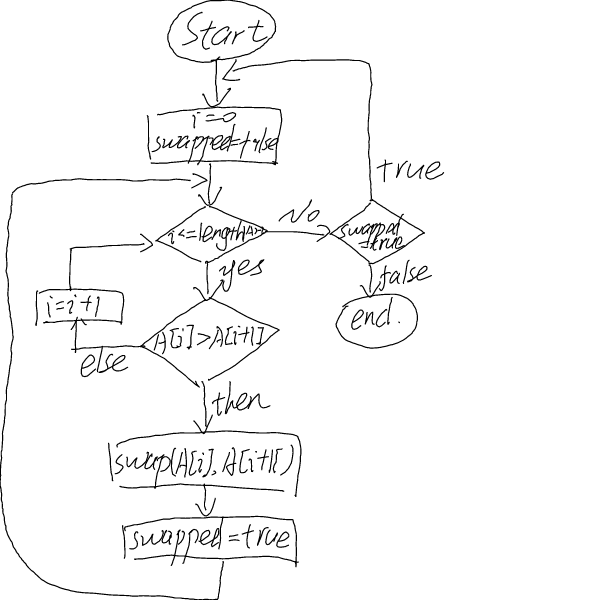 Start
i=0
swapped=false
i<=length(A)-1
No
swapped
=true
true
false
end.
yes
i=i+1
A[i]>A[i+1]
else
then
swap(A[i], A[i+1])
swapped=true